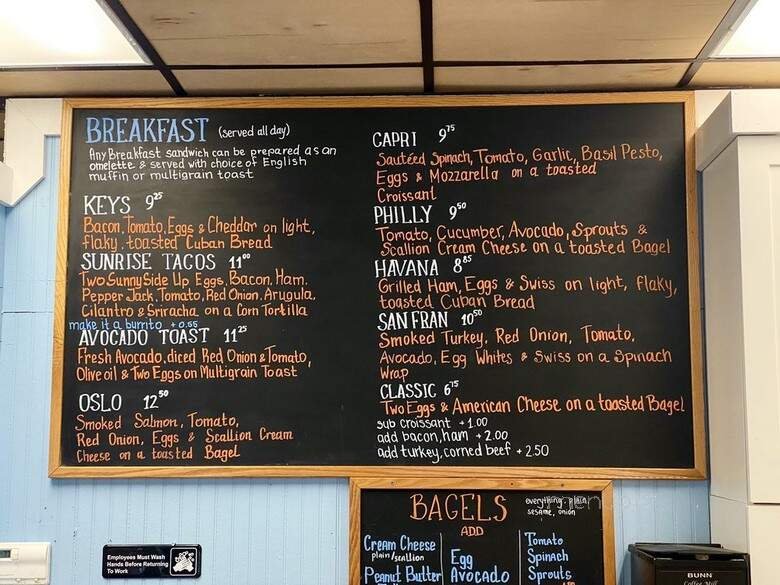 BREAKFAST (served all day)
Any Breakfast sandwich can be prepared as an
omelette & served with choice of English
muffin or multigrain toast
KEYS 9²⁵
Bacon, Tomato, Eggs & Cheddar on light,
flaky, toasted Cuban Bread
SUNRISE TACOS 11⁰⁰
Two Sunny Side Up Eggs, Bacon, Ham,
Pepper Jack, Tomato, Red Onion, Arugula,
Cilantro & Sriracha on a Corn Tortilla
make it a burrito + 0.55
AVOCADO TOAST 11²⁵
Fresh Avocado, diced Red Onion & Tomato,
Olive oil & Two Eggs on Multigrain Toast
OSLO 12⁵⁰
Smoked Salmon, Tomato,
Red Onion, Eggs & Scallion Cream
Cheese on a toasted Bagel
CAPRI 9⁷⁵
Sautéed Spinach, Tomato, Garlic, Basil Pesto,
Eggs & Mozzarella on a toasted
Croissant
PHILLY 9⁵⁰
Tomato, Cucumber, Avocado, Sprouts &
Scallion Cream Cheese on a toasted Bagel
HAVANA 8⁸⁵
Grilled Ham, Eggs & Swiss on light, flaky,
toasted Cuban Bread
SAN FRAN 10⁵⁰
Smoked Turkey, Red Onion, Tomato,
Avocado, Egg Whites & Swiss on a Spinach
Wrap
CLASSIC 6⁷⁵
Two Eggs & American Cheese on a toasted Bagel
sub croissant + 1.00
add bacon, ham + 2.00
add turkey, corned beef + 2.50
BAGELS
everything, plain,
sesame, onion
ADD
Cream Cheese
plain/scallion
Peanut Butter
Egg
Avocado
Tomato
Spinach
Sprouts
Employees Must Wash
Hands Before Returning
To Work
BUNN
Coffee Mill